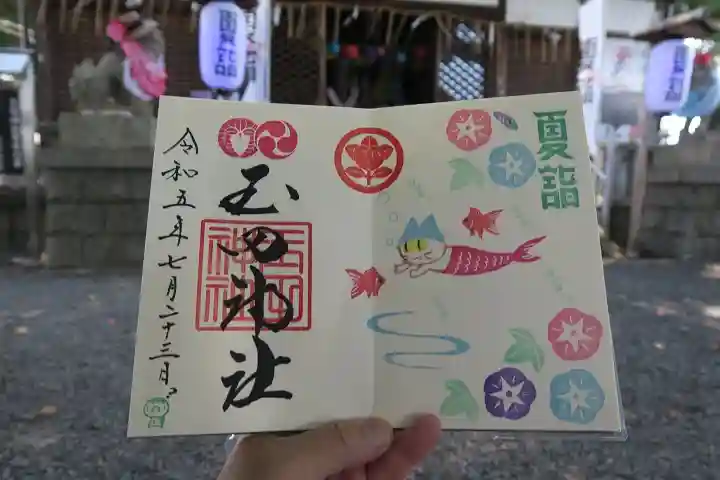 夏詣
玉田神社
玉田
神社
令和五年七月二十三日
夏詣
夏詣